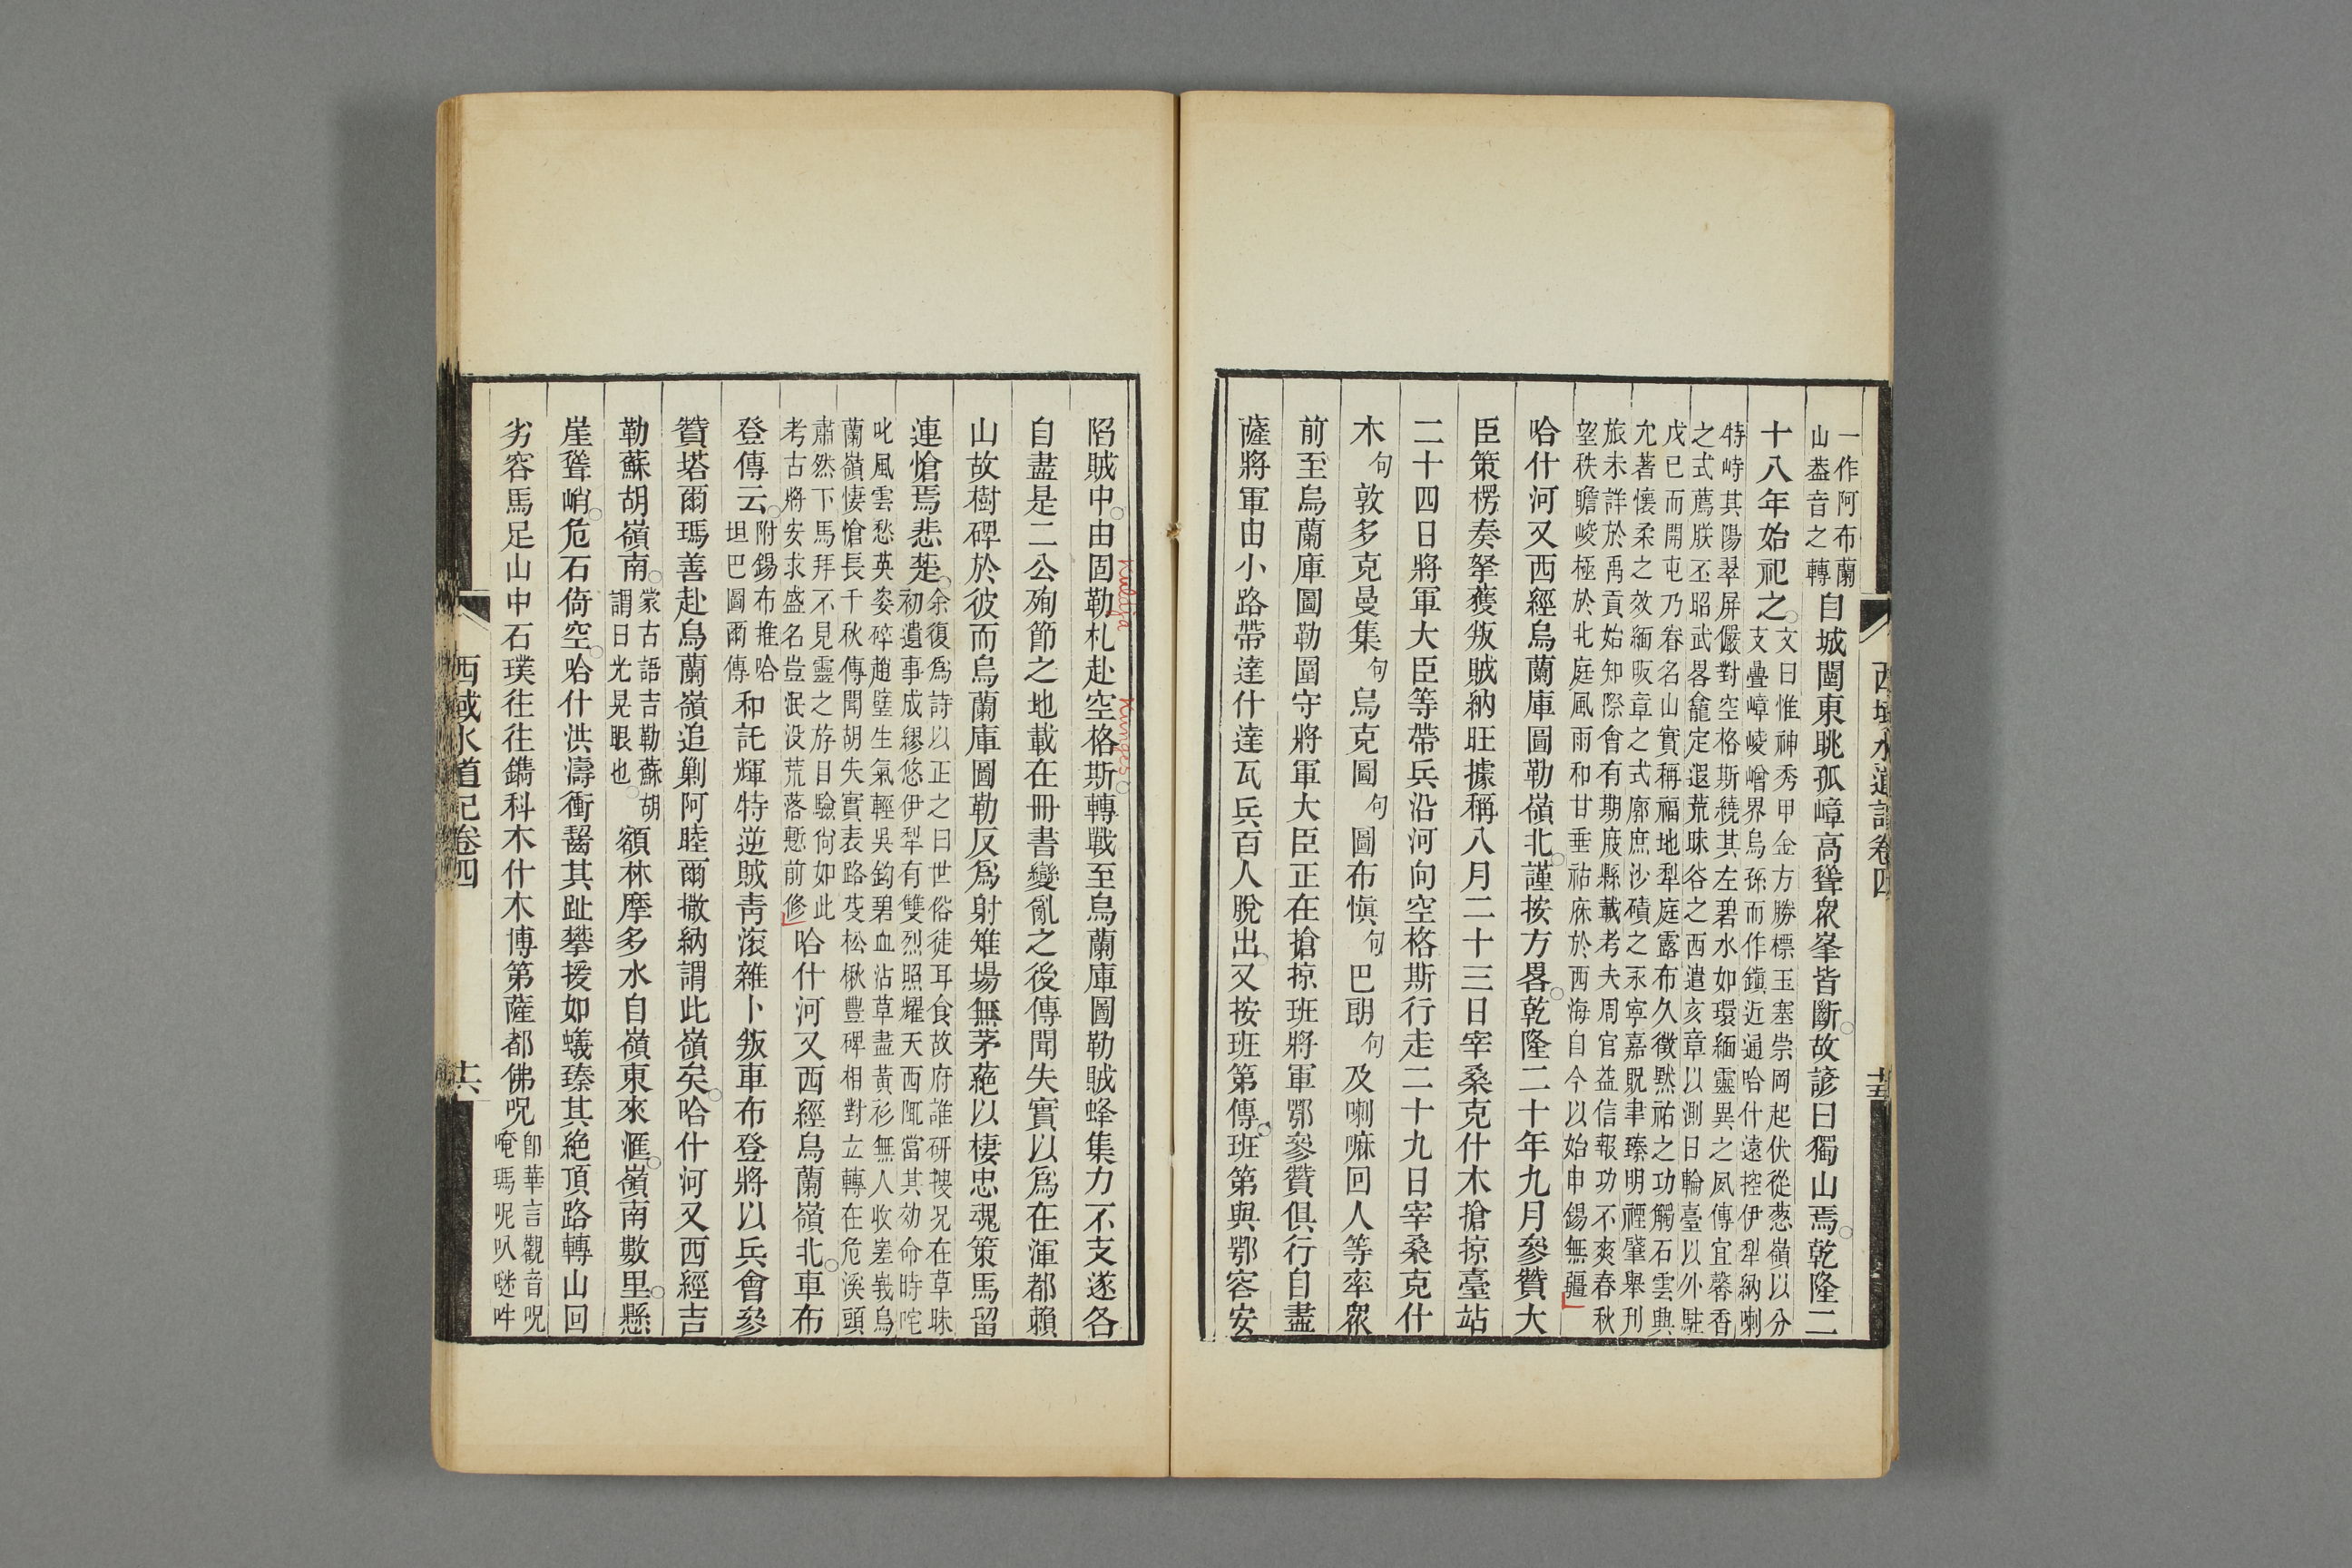 西域水道記卷四
十五
一作阿布蘭
山葢音之轉
自城闉東眺孤嶂高聳衆峯皆斷故諺曰獨山焉乾隆二
十八年始祀之
文曰惟神秀甲金方勝標玉塞崇岡起伏從葱嶺以分
支疊嶂崚嶒界烏孫而作鎭近通哈什遠控伊犁納喇
特峙其陽翠屏儼對空格斯繞其左碧水如環緬靈異之夙傳宜馨香
之式薦朕丕昭武畧龕定遐荒昧谷之西遣亥章以測日輪臺以外駐
戊巳而開屯乃眷名山實稱福地犁庭露布久徵黙祐之功觸石雲興
允著懷柔之效緬昄章之式廓庶沙磧之永寧嘉貺聿臻明禋肇舉刋
旅未詳於禹貢始知際會有期庪縣載考夫周官益信報功不爽春秋
望秩瞻峻極於北庭風雨和甘垂祐庥於西海自今以始申錫無疆
哈什河又西經烏蘭庫圖勒嶺北謹按方畧乾隆二十年九月參贊大
臣策楞奏拏獲叛賊納旺據稱八月二十三日宰桑克什木搶掠臺站
二十四日將軍大臣等帶兵沿河向空格斯行走二十九日宰桑克什
木句敦多克曼集句烏克圖句圖布愼句巴朗句及喇嘛回人等率衆
前至烏蘭庫圖勒圍守將軍大臣正在搶掠班將軍鄂參贊俱行自盡
薩將軍由小路帶達什達瓦兵百人脫出又按班第傳班第與鄂容安
陷賊中由固勒札赴空格斯轉戰至烏蘭庫圖勒賊蜂集力不支遂各
Kuldja
Kunges
自盡是二公殉節之地載在冊書變亂之後傳聞失實以爲在渾都賴
山故樹碑於彼而烏蘭庫圖勒反爲射雉場無茅蕝以棲忠魂策馬留
連愴焉悲楚
余復爲詩以正之曰世俗徒耳食故府誰研搜况在草昧
初遺事成繆悠伊犁有雙烈照耀天西陬當其効命時咤
叱風雲愁英姿碎趙璧生氣輕吳鉤碧血沾草盡黃衫無人收塞峩烏
蘭嶺悽愴長千秋傳聞胡失實表路芟松楸豐碑相對立轉在危溪頭
肅然下馬拜不見靈之斿目驗尙如此
考古將安求盛名豈泯没荒落慙前修
哈什河又西經烏蘭嶺北車布
登傳云
附錫布推哈
坦巴圖爾傳
和託輝特逆賊靑滚雜卜叛車布登將以兵會參
贊塔爾瑪善赴烏蘭嶺追剿阿睦爾撒納謂此嶺矣哈什河又西經吉
勒蘇胡嶺南
蒙古語吉勒蘇胡
謂日光晃眼也
額林摩多水自嶺東來滙嶺南數里懸
崖聳峭危石倚空哈什洪濤衝齧其趾攀援如蟻臻其絶頂路轉山回
劣容馬足山中石璞往往鐫科木什木博第薩都佛呪
卽華言觀音呪
唵瑪呢叭𠺗吽
西域水道記卷四
十六